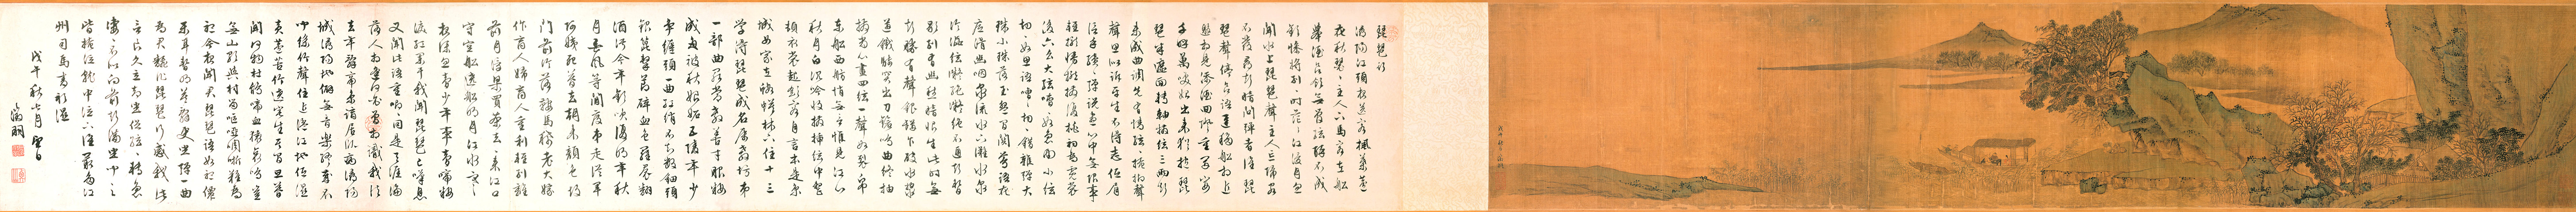 琵琶行
潯陽江頭夜送客楓葉荻
花秋瑟瑟主人下馬客在船
舉酒欲飲無管弦醉不成
歡慘將別別時茫茫江浸月忽
聞水上琵琶聲主人忘歸客
不發尋聲暗問彈者誰琵
琶聲停欲語遲移船相近
邀相見添酒回燈重開宴
千呼萬喚始出來猶抱琵
琶半遮面轉軸撥弦三兩聲
未成曲調先有情弦弦掩抑聲
聲思似訴平生不得志低眉
信手續續彈說盡心中無限事
輕攏慢撚抹復挑初為霓裳
後六幺大弦嘈嘈如急雨小弦
切切如私語嘈嘈切切錯雜彈大
珠小珠落玉盤間關鶯語花
底滑幽咽泉流水下灘水泉
冷澀弦凝絕凝絕不通聲暫
歇別有幽愁暗恨生此時無
聲勝有聲銀瓶乍破水漿
迸鐵騎突出刀鎗鳴曲終抽
撥當心畫四弦一聲如裂帛
東船西舫悄無言惟見江心
秋月白沉吟收撥插弦中整
頓衣裳起斂容自言本是京
城女家在蝦蟆陵下住十三
學得琵琶成名屬教坊第
一部曲罷常教善才服妝
成每被秋娘妒五陵年少
爭纏頭一曲紅綃不知數鈿頭
銀篦擊節碎血色羅裙翻
酒污今年歡笑復明年秋
月春風等閒度弟走從軍
阿姨死暮去朝來顏色故
門前冷落鞍馬稀老大嫁
作商人婦商人重利輕別離
前月浮梁買茶去去來江口
守空船遶船明月江水寒
夜深忽夢少年事夢啼妝
淚紅闌干我聞琵琶已嘆息
又聞此語重唧唧同是天涯淪
落人相逢何必曾相識我從
去年辭帝京謫居臥病潯陽
城潯陽地僻無音樂終歲不
聞絲竹聲住近湓江地低濕
黃蘆苦竹遶宅生其間旦暮
聞何物杜鵑啼血猿哀鳴豈
無山歌與村笛嘔啞嘲哳難為
聽今夜聞君琵琶語如聽仙
樂耳暫明莫辭更坐彈一曲
為君翻作琵琶行感我此
言良久立却坐促弦弦轉急
淒淒不似向前聲滿座聞之
皆掩泣就中泣下誰最多江
州司馬青衫濕
戊午秋七月望日
徵明